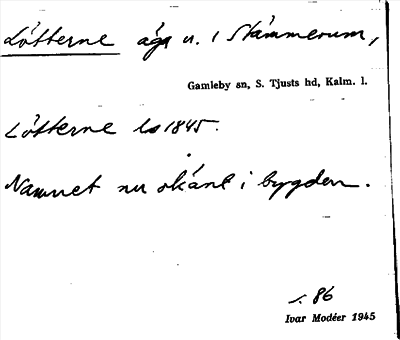 Lötterne äga u. i Stämmerum,
Gamleby sn, S. Tjusts hd, Kalm. l.
Lötterne ls 1845.
Namnet nu okänt i bygden.
s. 86
Ivar Modéer 1945